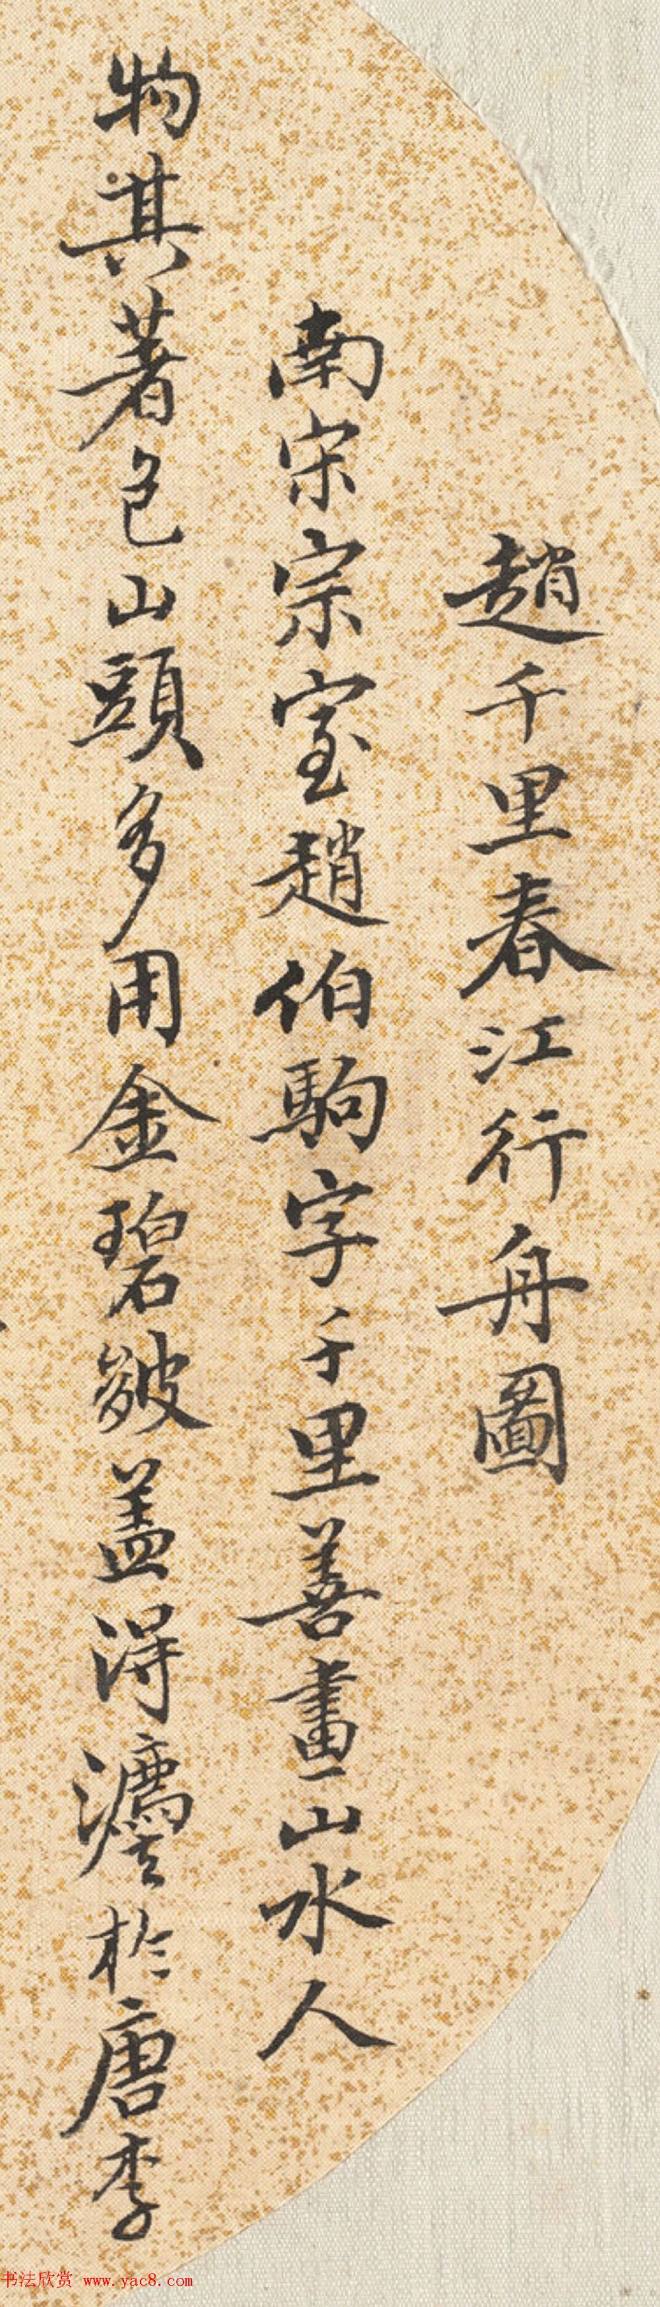 趙千里春江行舟圖
南宋宗室趙伯駒字千里善畫山水人
物其著色山頭多用金碧皴盖得灋於唐李
书法欣赏 www.yac8.com